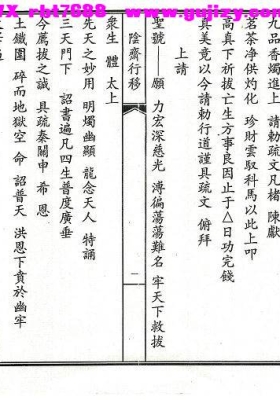 九品香燭進上 請勅疏文凡楮 陳獻
茗茶淨供灼化 珍財雲馭科馬以此上叩
高真下祈拔亡生方事良因止于△日功完錢
具美竟以今請勅行道謹具疏文 俯拜
上請
聖號——願 力宏深慈光 溥偏蕩蕩難名 牢天下救拔
陰齋行移
二
衆生 體 太上
先天之妙用 明燭幽顯 龍念天人 特誦
三天門下 詔書遍凡四生普度廣垂
今薦拔之誠 具疏秦關申 希 恩
土鐵圍 碎而地獄空 命 詔普天 洪恩下賁於幽牢
www.gujizy.com